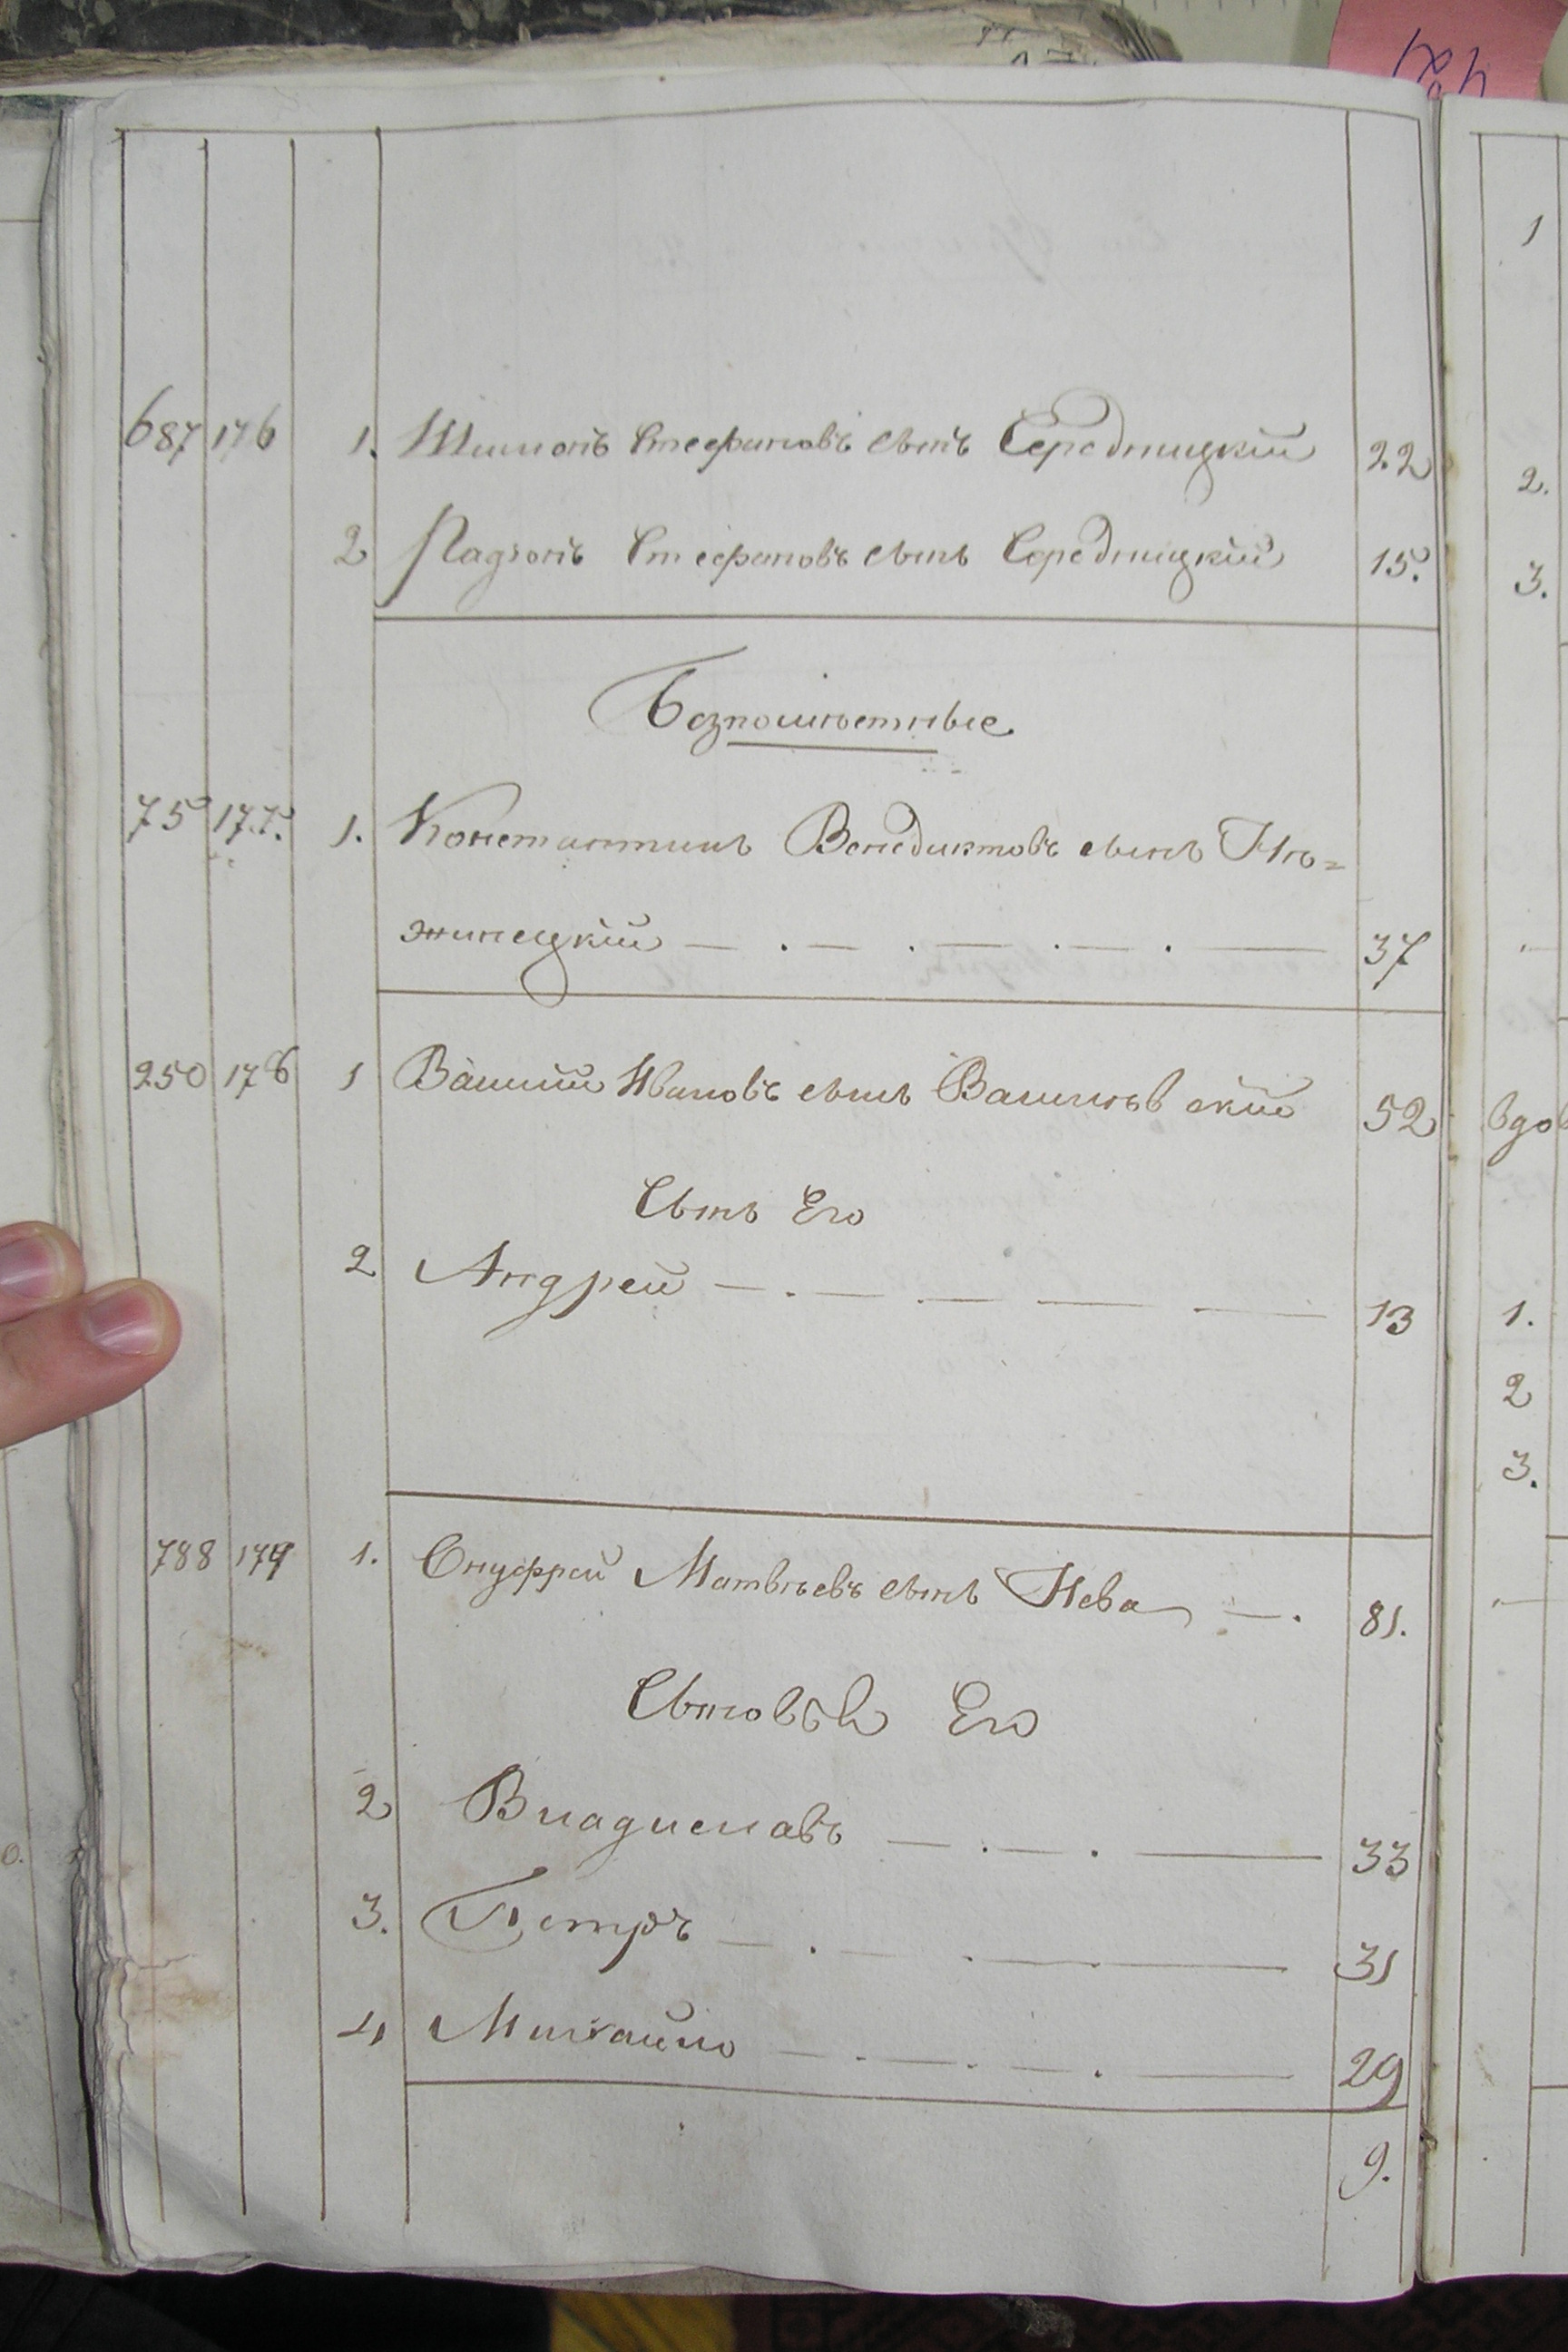 687 176 1. Шимонъ Стефановъ сынъ Середницкій 22
2 Стефановъ сынъ Середницкій 15.
Безпоместные
75 177. 1. Константинъ Венедиктовъ сынъ Ню=
жинецкій — . — . — . — . — 37
250 178 1 Василій Ивановъ сынъ 52
Сынъ Его
2 Андрей — . — . — — — 13
788 179 1. Онуфрей Матвѣевъ сынъ Нева — . 81.
Сыновья Его
2 Владиславъ — . — . — 33
3. Петръ — . — . — 31
4 Михайло — . — . — . — 29
9.
1
2.
3.
вдов
1.
2
3.